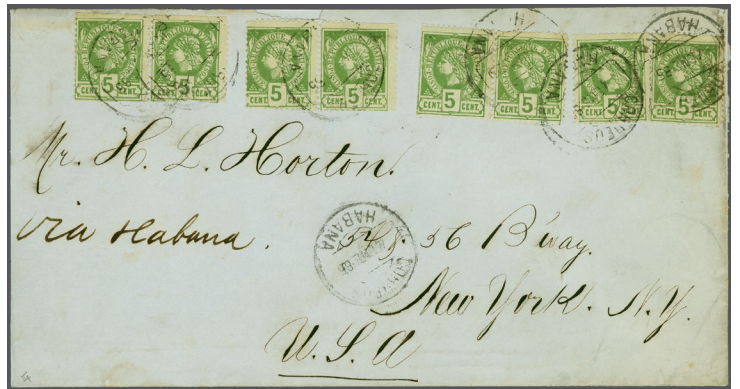 CENT. 5 CENT. CENT. 5 CENT. CENT. 5 CENT. CENT. 5 CENT. CENT. 5 CENT. CENT. 5 CENT. CENT. 5 CENT. CENT. 5 CENT.
HABANA
HABANA
Mr. H. L. Horton.
via Habana.
CORREOS
HABANA
56 B'way.
New York. N.Y.
U.S.A